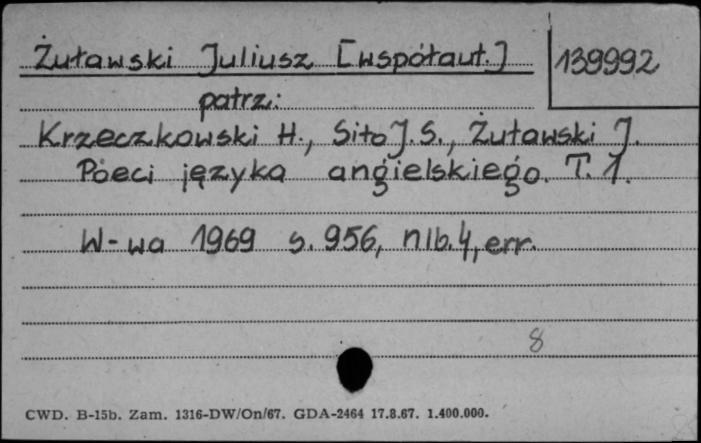 Żuławski Juliusz [współaut.]
139992
patrz:
Krzeczkowski H., Sito J. S., Żuławski J.
Poeci języka angielskiego. T. 1.
W-wa 1969 s. 956, nlb. 4, err.
8
CWD. B-15b. Zam. 1316-DW/On/67. GDA-2464 17.8.67. 1.400.000.